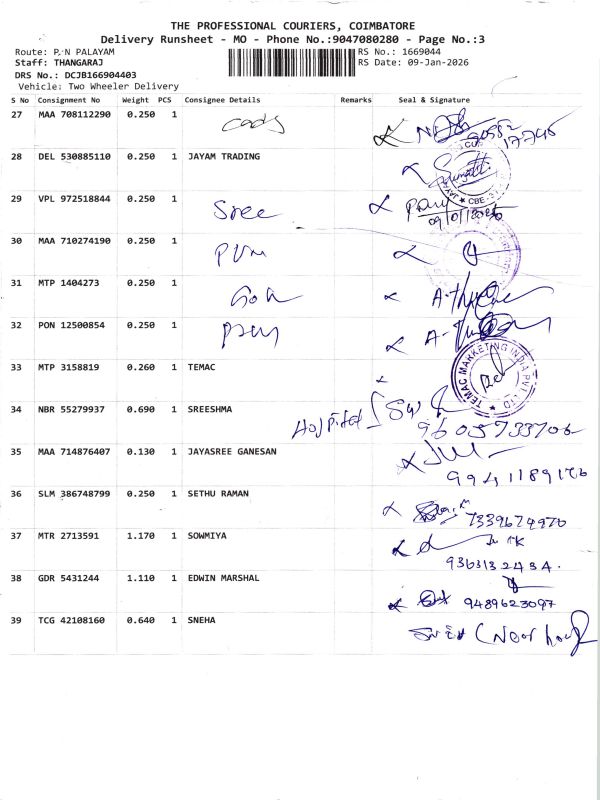 THE PROFESSIONAL COURIERS, COIMBATORE
Delivery Runsheet - MO - Phone No.:9047080280 - Page No.:3
Route: P.N PALAYAM RS No.: 1669044
Staff: THANGARAJ RS Date: 09-Jan-2026
DRS No.: DCJB166904403
Vehicle: Two Wheeler Delivery
S No Consignment No Weight PCS Consignee Details Remarks Seal & Signature
27 MAA 708112290 0.250 1
28 DEL 530885110 0.250 1 JAYAM TRADING
29 VPL 972518844 0.250 1 Sree
09/01/2026
30 MAA 710274190 0.250 1
31 MTP 1404273 0.250 1
32 PON 12500854 0.250 1
33 MTP 3158819 0.260 1 TEMAC TEMAC MARKETING INDIA PVT. LTD
34 NBR 55279937 0.690 1 SREESHMA
Hospital 9605733706
35 MAA 714876407 0.130 1 JAYASREE GANESAN
9941189176
36 SLM 386748799 0.250 1 SETHU RAMAN
7339674970
37 MTR 2713591 1.170 1 SOWMIYA
9363132434.
38 GDR 5431244 1.110 1 EDWIN MARSHAL
9489623097
39 TCG 42108160 0.640 1 SNEHA